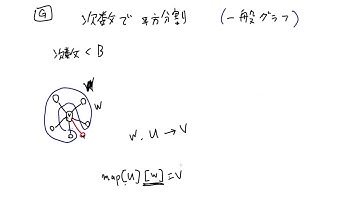 G 次数で平方分割 (一般グラフ)
次数 < B
w
w
w. u → v
map[u][w] = v